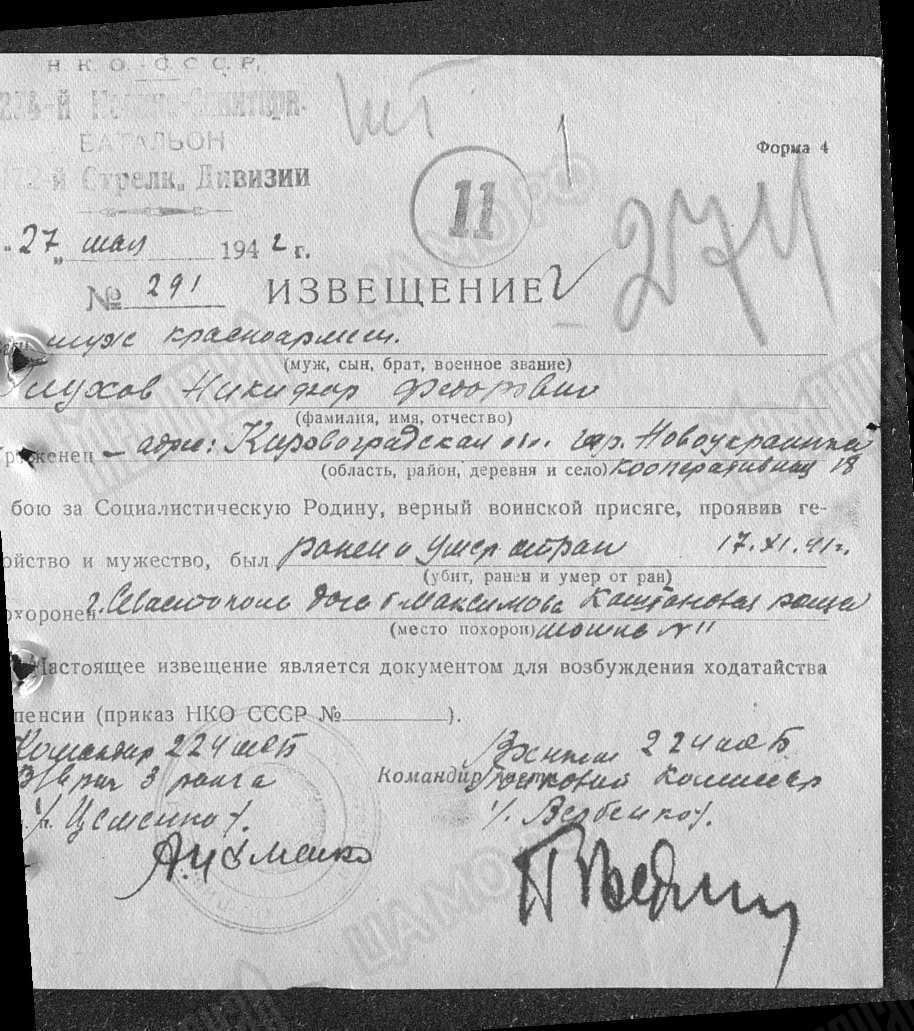 Н. К. О. - С. С. С. Р.
БАТАЛЬОН
172-й Стрелк. Дивизии
11
Форма 4
274
"27" мая 1942 г.
№ 291
ИЗВЕЩЕНИЕ
муж красноармеец.
(муж, сын, брат, военное звание)
Глухов Никифор Федорович
(фамилия, имя, отчество)
уроженец – адрес: Кировоградская обл. гор. Новоукраинка
(область, район, деревня и село) Кооперативная 18
бою за Социалистическую Родину, верный воинской присяге, проявив ге-
ройство и мужество, был ранен и умер от ран 17.XI.41 г.
(убит, ранен и умер от ран)
похоронен г. Севастополь дача Максимова Каштановая роща
(место похорон) могила № 11
Настоящее извещение является документом для возбуждения ходатайства
пенсии (приказ НКО СССР № ).
Командир 224 МСБ
В/врач 3 ранга
Военком 224 МСБ
Командир части
Батальонный Комиссар
/. Цеменко /.
/. Вербенко /.